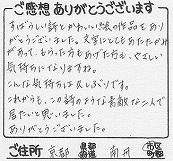 ご感想 ありがとうございます
すばらしい詩とかわいい絵の作品をあり
がとうございました。文章にとてもあたたかみが
があって、もらった方もあげた方も、やさしい
気持ちになりますね。
こんな気持ちは久しぶりです。
これからも、この詩のような素敵な心で
居たいと思いました。
ありがとうございました。
ご住所 京都 都道府県 南丹 市区町村